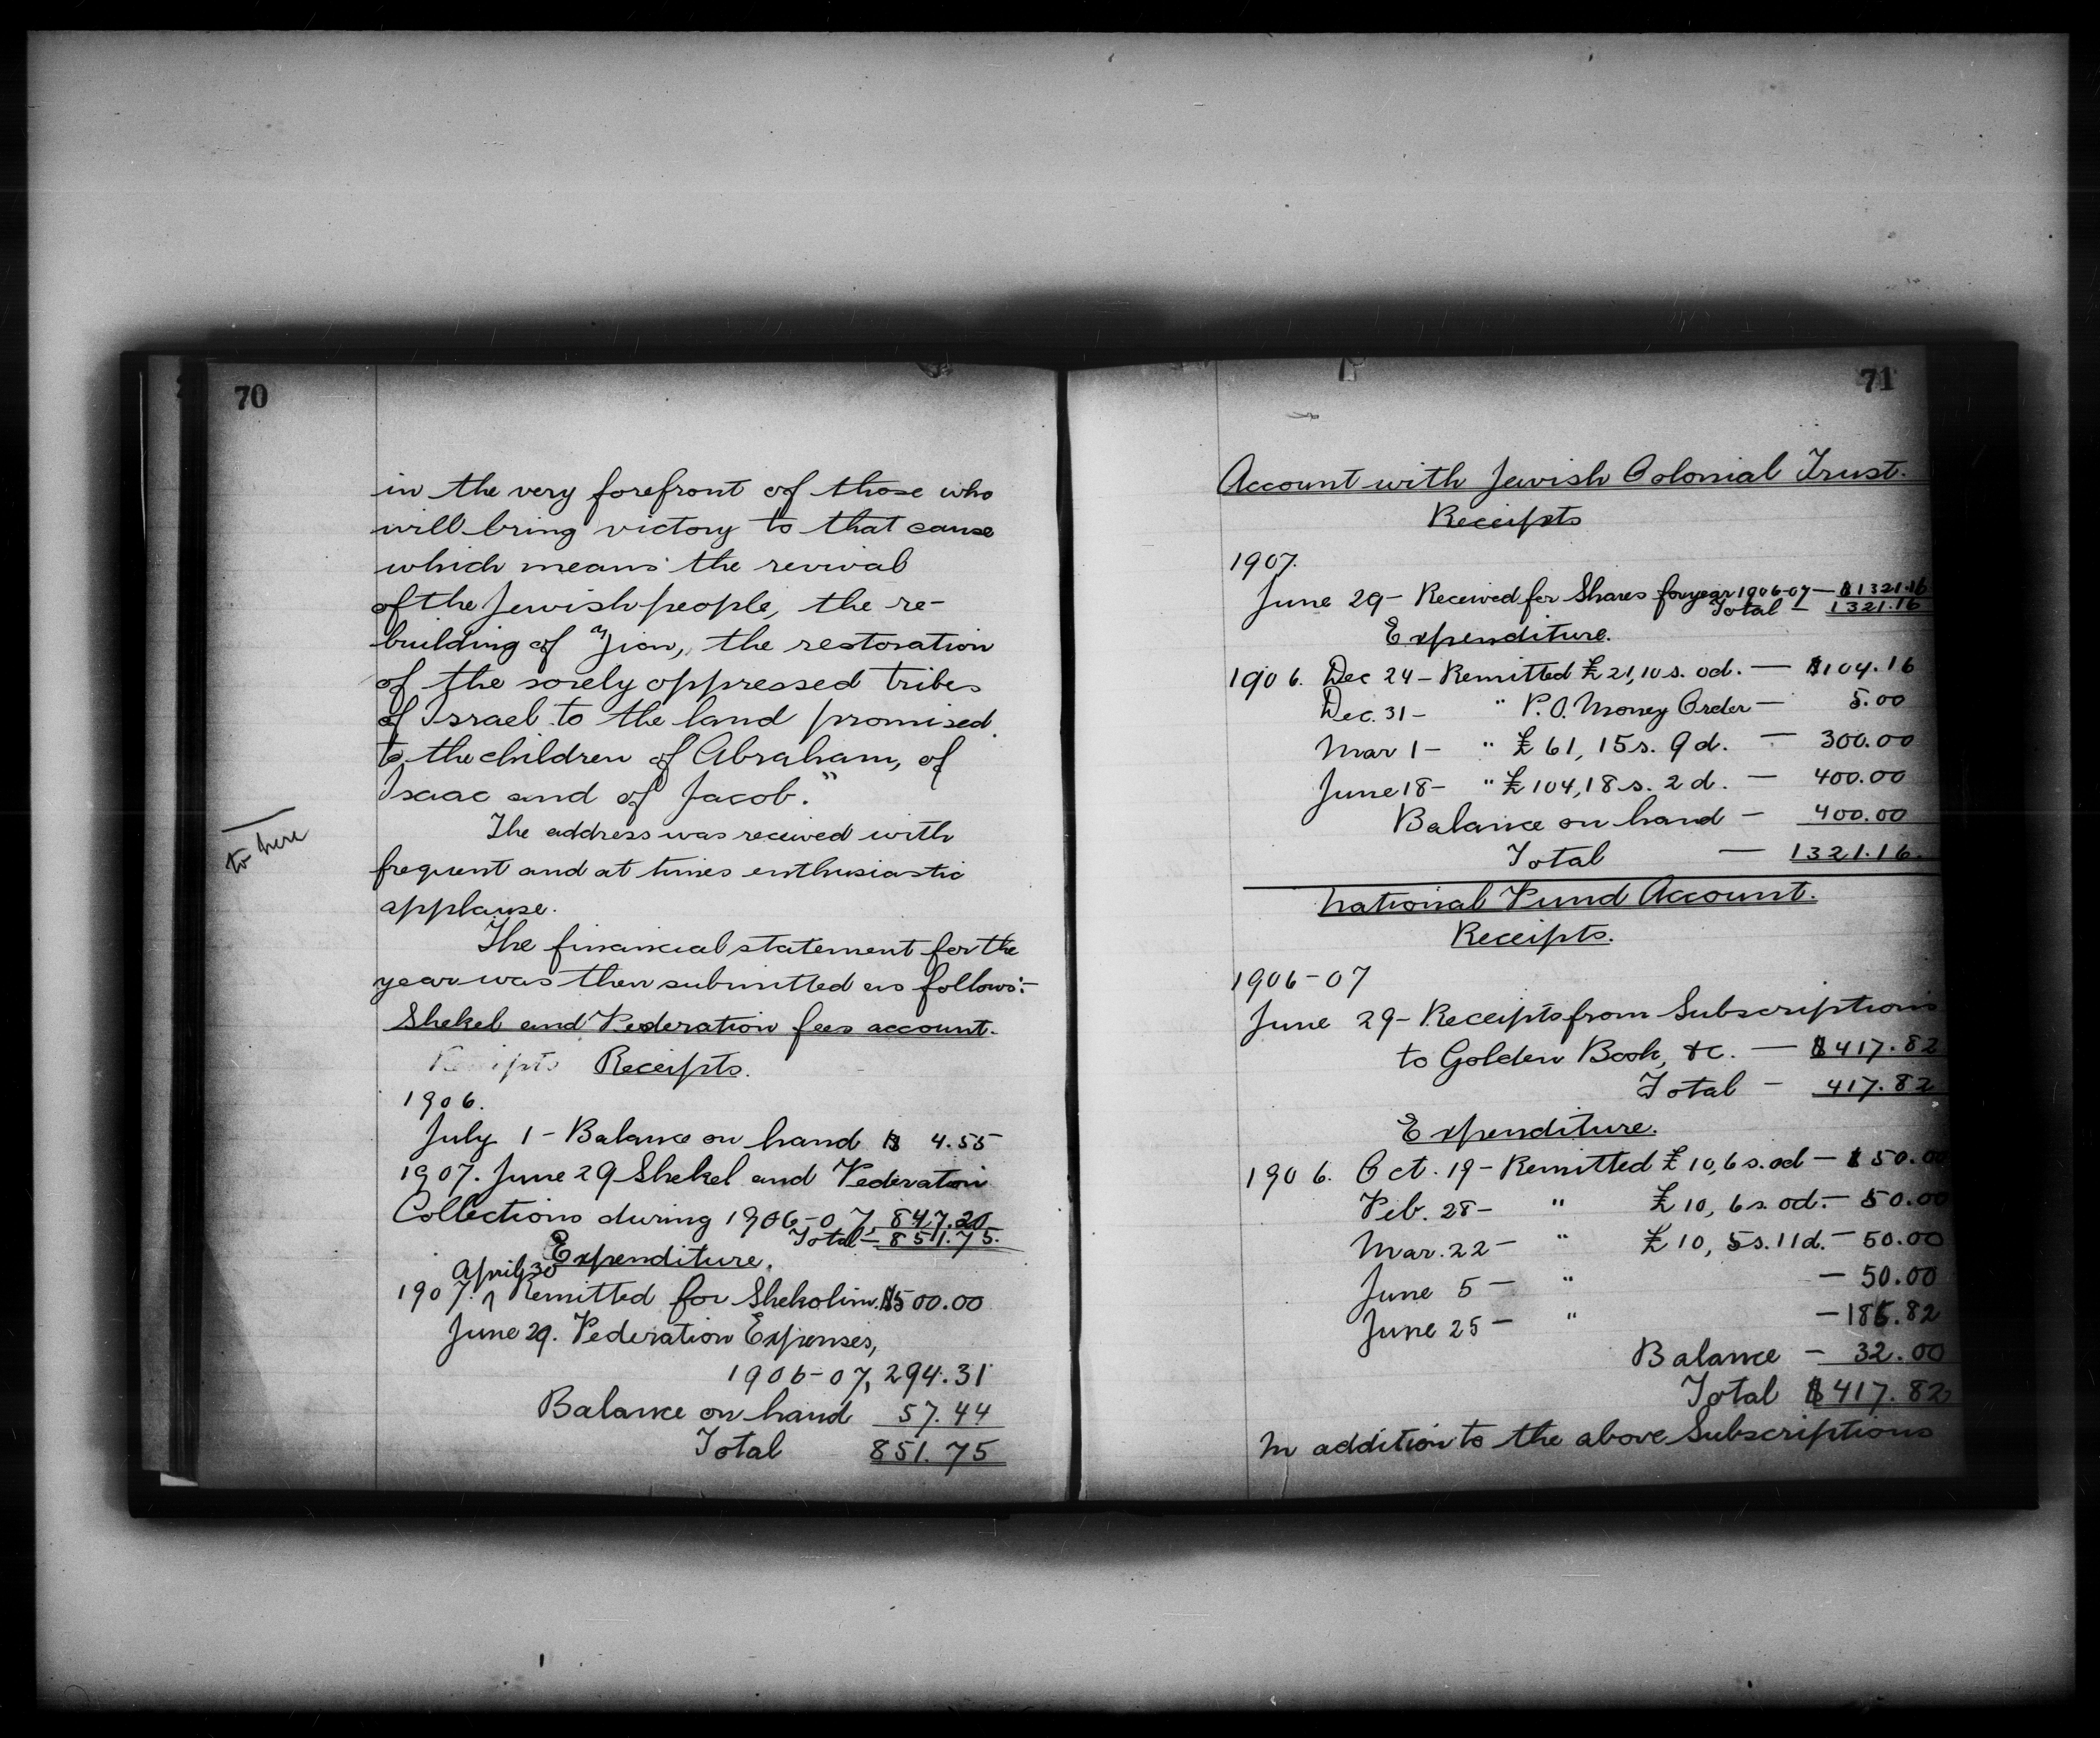 70
in the very forefront of those who
will bring victory to that cause
which means the revival
of the Jewish people, the re-
building of Zion, the restoration
of the sorely oppressed tribes
of Israel to the land promised
to the children of Abraham, of
Isaac and of Jacob."
to here
The address was received with
frequent and at times enthusiastic
applause.
The financial statement for the
year was then submitted as follows:-
Shekel and Federation fees account.
Receipts Receipts.
1906.
July 1 - Balance on hand $ 4.55
1907. June 29 Shekel and Federation
Collections during 1906-07, 847.20
Total - 851.75.
Expenditure.
April 30
1907. ^ Remitted for Shekolim. $500.00
June 29. Federation Expenses,
1906-07, 294.31
Balance on hand 57.44
Total 851.75
71
Account with Jewish Colonial Trust.
Receipts
1907.
June 29 - Received for Shares for year 1906-07 - $1321.16
Total - 1321.16
Expenditure.
1906. Dec 24 - Remitted £21,10s. od. — $104.16
Dec. 31 - " P.O. Money Order - 5.00
Mar 1 - " £61, 15s. 9d. — 300.00
June 18 - " £104,18s. 2d. — 400.00
Balance on hand - 400.00
Total — 1321.16.
National Fund Account.
Receipts.
1906-07
June 29 - Receipts from Subscriptions
to Golden Book, &c. — $417.82
Total - 417.82
Expenditure.
1906. Oct. 19 - Remitted £10,6s.od - $50.00
Feb. 28 - " £10, 6s. od. - 50.00
Mar. 22 - " £10, 5s. 11d. - 50.00
June 5 - " - 50.00
June 25 - " - 185.82
Balance - 32.00
Total $417.82
In addition to the above Subscriptions